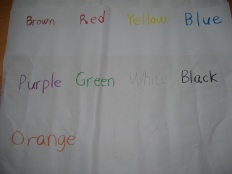 Brown Red Yellow Blue
Purple Green White Black
Orange